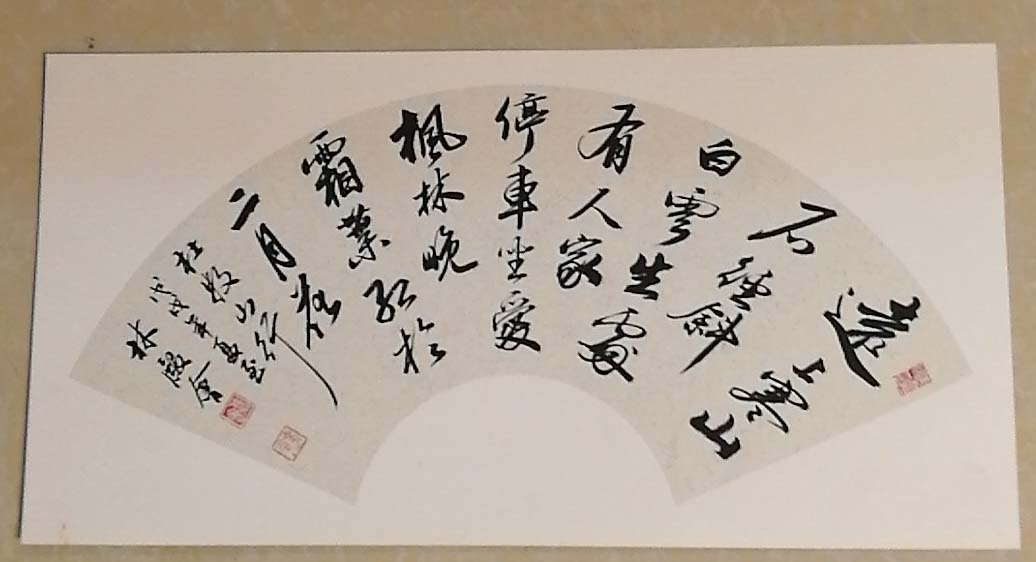 遠上寒山
石徑斜
白雲生處
有人家
停車坐愛
楓林晚
霜葉紅於
二月花
杜牧山行
戊戌年夏至
林殿會